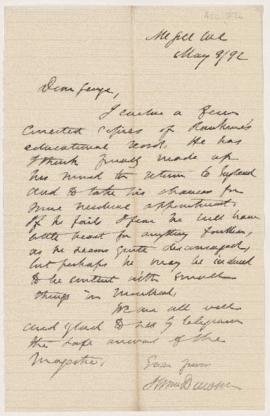 McGill Coll
May 9/92
Dear George,
I enclose a few
corrected copies of Rankine's
educational record. He has
I think finally made up
his mind to return to England
and to take his chances for
some medical appointment.
If he fails I fear he will have
little heart for anything further,
as he seems quite discouraged,
but perhaps he may be induced
to be content with small
things in Montreal.
We are all well
and glad to see by telegram
the safe arrival of the
Magpie.
Ever yours